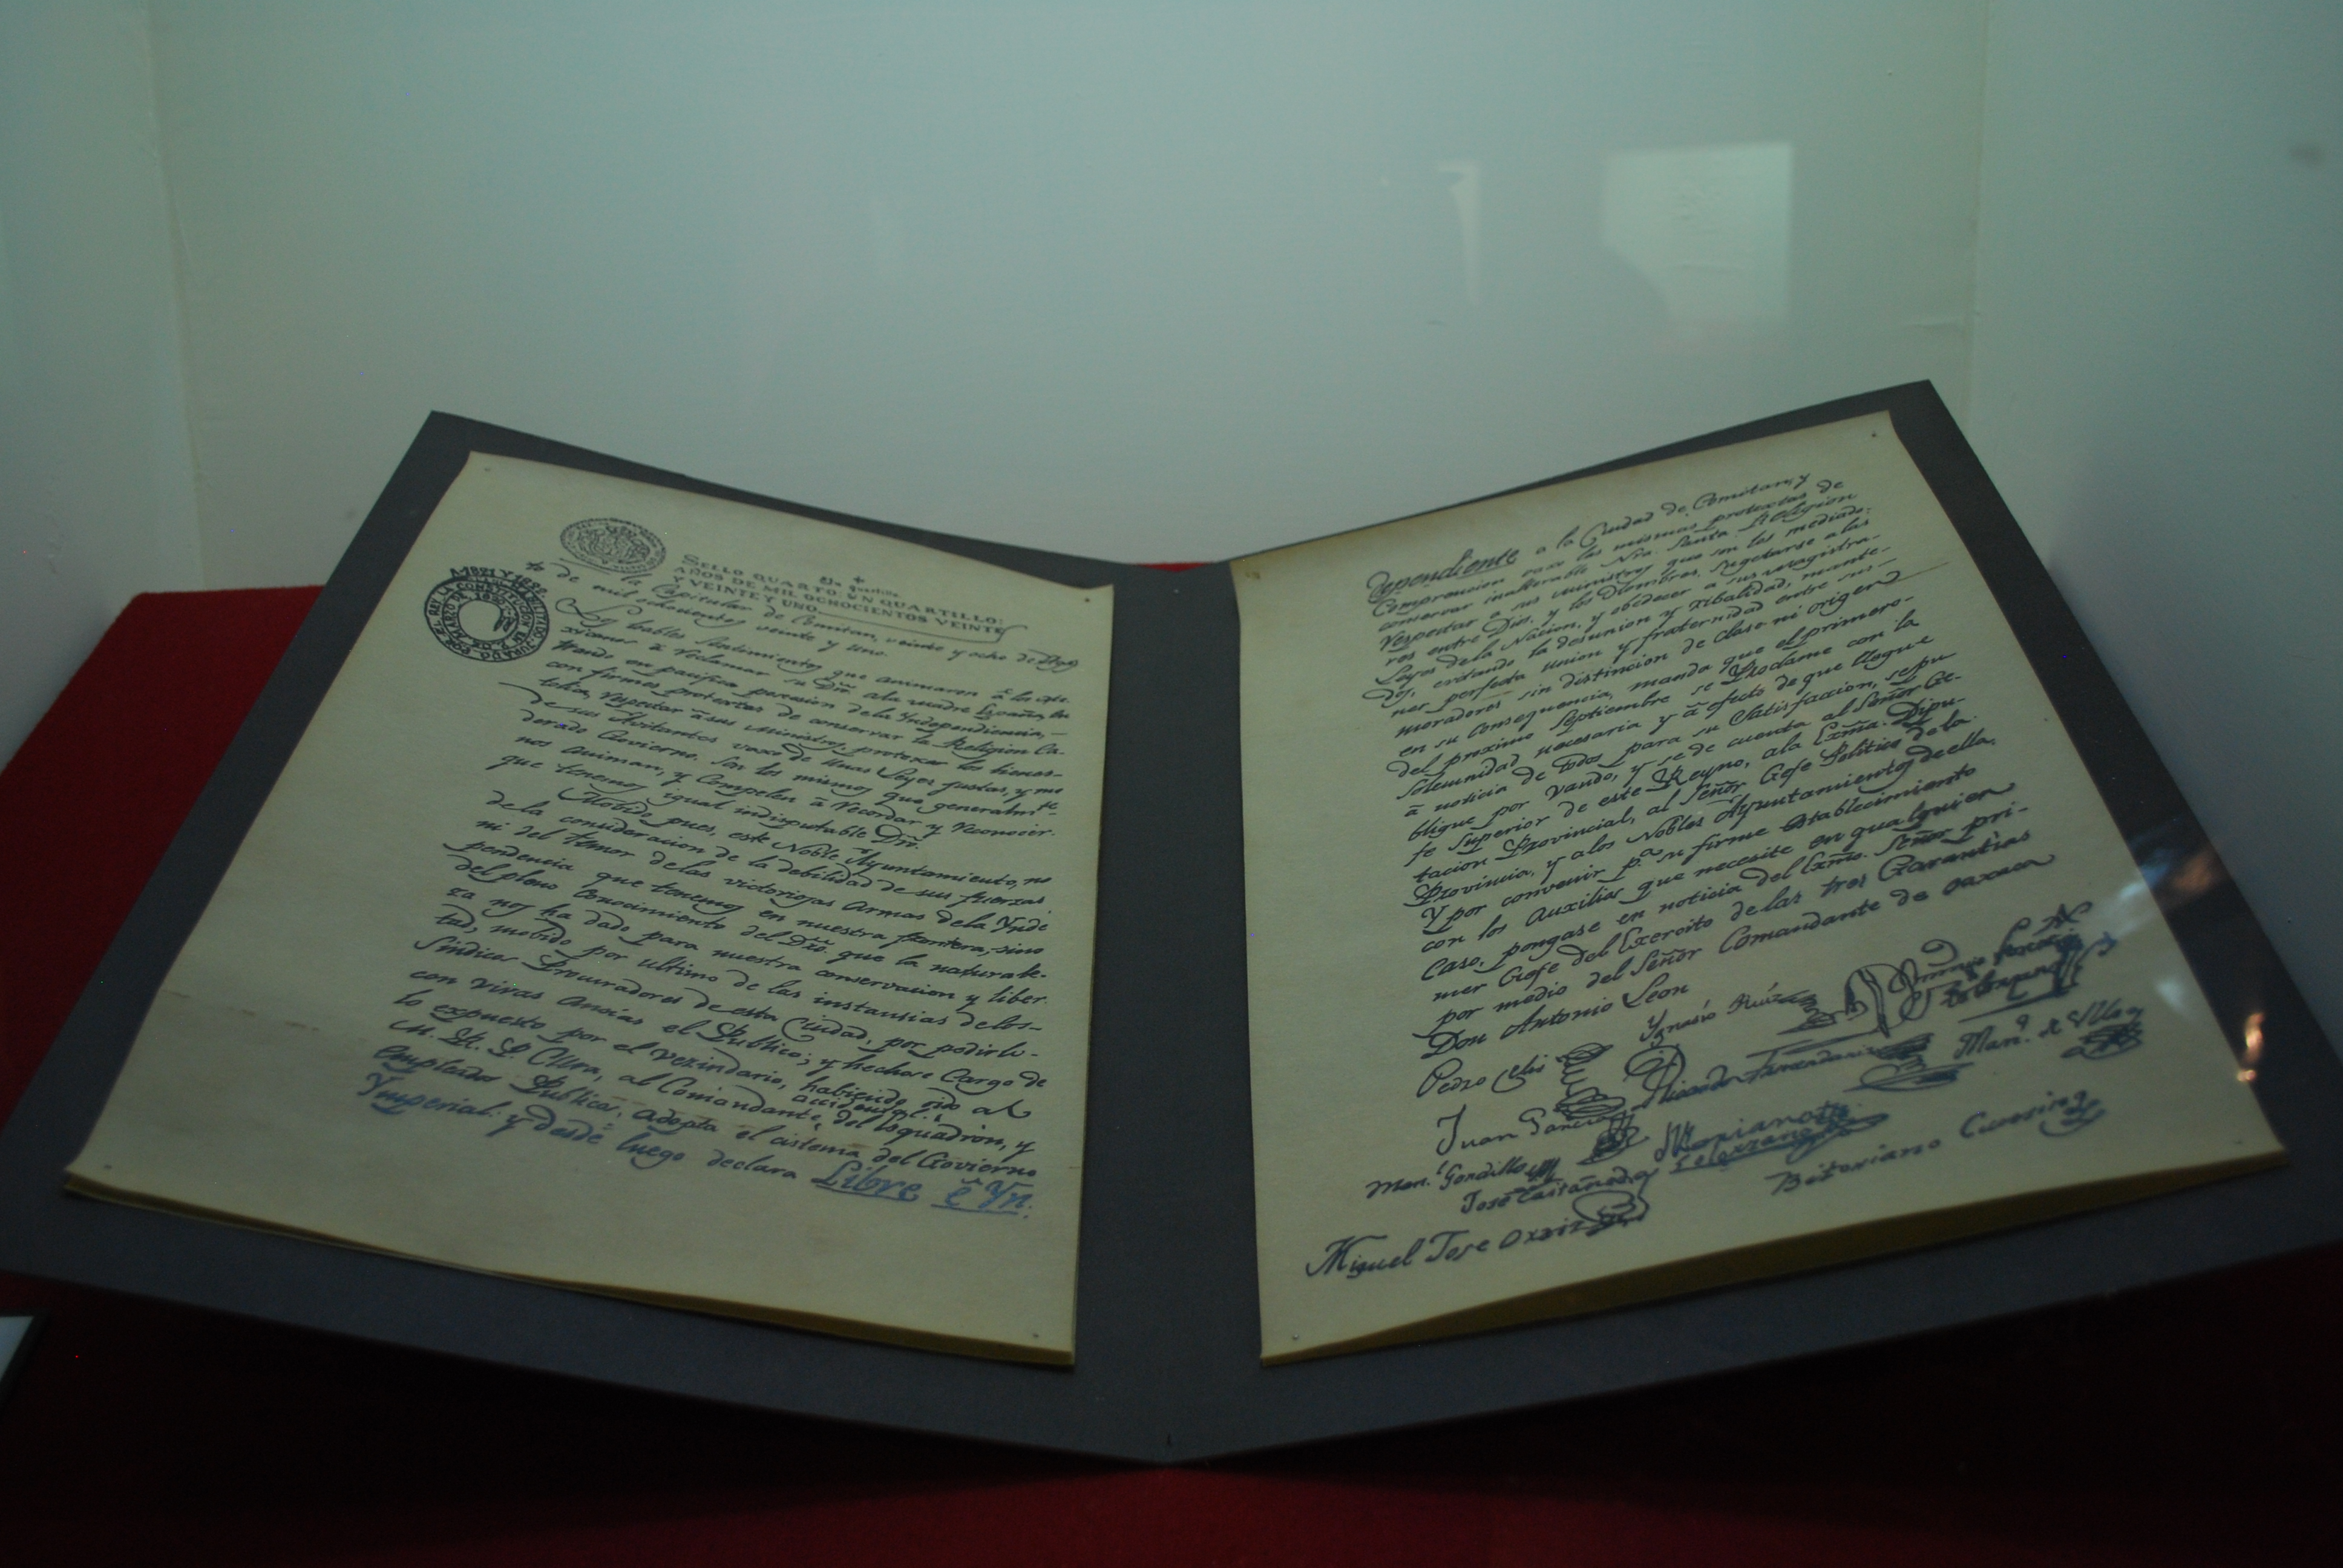 Un quartillo.
SELLO QUARTO, VN QUARTILLO:
AÑOS DE MIL OCHOCIENTOS VEINTE
Y VEINTE Y UNO.
la Capitular de Comitan, veinte y ocho de Agos
to de mil ochocientos veinte y uno.
Los nobles sentimientos que animaron á los
xicanos á reclamar su Dro. ala madre España,
trando en pacifica posesion dela Yndependiencia,
con firmes protextas de conservar la Religion Ca-
tolica, respetar á sus Ministros, protexer los bienes
de sus Avitantes vaxo de Unas Leyes justas, y mo
derado Govierno. Son los mismos que generalmte.
nos animan, y Compelen á recordar y reconocer.
que tenemos igual indisputable Dro.
Mobido pues, este Noble Ayuntamiento, no
de la consideracion de la debilidad de sus fuerzas
ni del temor delas victoriosas armas dela Ynde
pendencia que tenemos en nuestra frontera, sino
del pleno Conocimiento del Dro. que la naturale-
za nos ha dado para nuestra conservacion y liber
tad, mobido por ultimo de las instansias delos-
Sindicos Procuradores de esta Ciudad, por pedirlo-
con vivas Ansias el Publico; y hechose Cargo de
lo expuesto por el vezindario, habiendo sido al
M. R. P. CUra, al Comandante, accidental del Esquadron, y
empleados Publicos, adopta el cistema del Govierno
Ymperial: y desde luego declara Libre é Yn:
dependiente a la Ciudad de Comitan, y
Comprencion vaxo las mismas protextas de
conservar inalterable Nra. Santa Religion
respectar a sus ministros que son los mediado-
res entre Dios. y los Hombres, sugetarse a las
Leyes dela Nacion, y obedecer a sus magistra-
dos, evitando la desunion y ribalidad, mante-
ner perfecta union y fraternidad entre sus
moradores sin distincion de clase ni origen
en su consequencia, manda que el primero-
del proximo Septiembre se Proclame con la
solemnidad necesaria y á efecto de que llegue
á noticia de todos para su Satisfaccion, se pu
blique por vando, y se de cuenta al Señor Ge-
fe Superior de este Reyno, ala Exma. Dipu-
tacion Provincial, al Señor Gefe Politico de la
Provincia, y alos Nobles Ayuntamientos de ella.
Y por convenir pa. su firme establecimiento
con los Auxilios que necesite en qualquier
Caso, pongase en noticia del Exmo. Señor pri-
mer Gefe del Exercito de las tres Garantias
por medio del Señor Comandante de Oaxaca
Don Antonio Leon
Pedro Celis
Ygnasio Ruiz
Solorzano
Juan Garcia
Man. de Ulloa
Man. Gordillo
Mariano
Solorzano
José Castañeda
Bitoriano
Miguel Jose